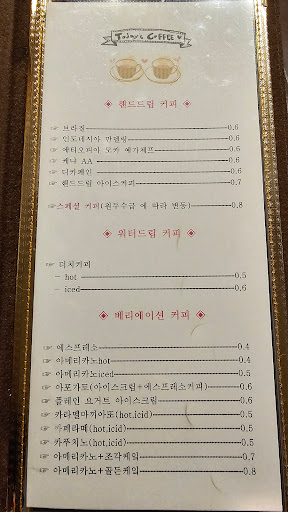 Today's COFFEE ♥
◈ 핸드드립 커피 ◈
☞ 브라질 0.6
☞ 인도네시아 만델링 0.6
☞ 에티오피아 모카 예가체프 0.6
☞ 케냐 AA 0.6
☞ 디카페인 0.6
☞ 핸드드립 아이스커피 0.7
☞스페셜 커피(원두수급 에 따라 변동) 0.8
◈ 워터드립 커피 ◈
☞ 더치커피
- hot 0.5
- iced 0.6
◈ 베리에이션 커피 ◈
☞ 에스프레소 0.4
☞ 아메리카노hot 0.4
☞ 아메리카노iced 0.5
☞ 아포가토(아이스크림+에스프레소커피) 0.6
☞ 플레인 요거트 아이스크림 0.6
☞ 카라멜마끼아또(hot,icid) 0.5
☞ 카페라떼(hot,icid) 0.5
☞ 카푸치노(hot,icid) 0.5
☞ 아메리카노+조각케잌 0.7
☞ 아메리카노+골든케잌 0.8